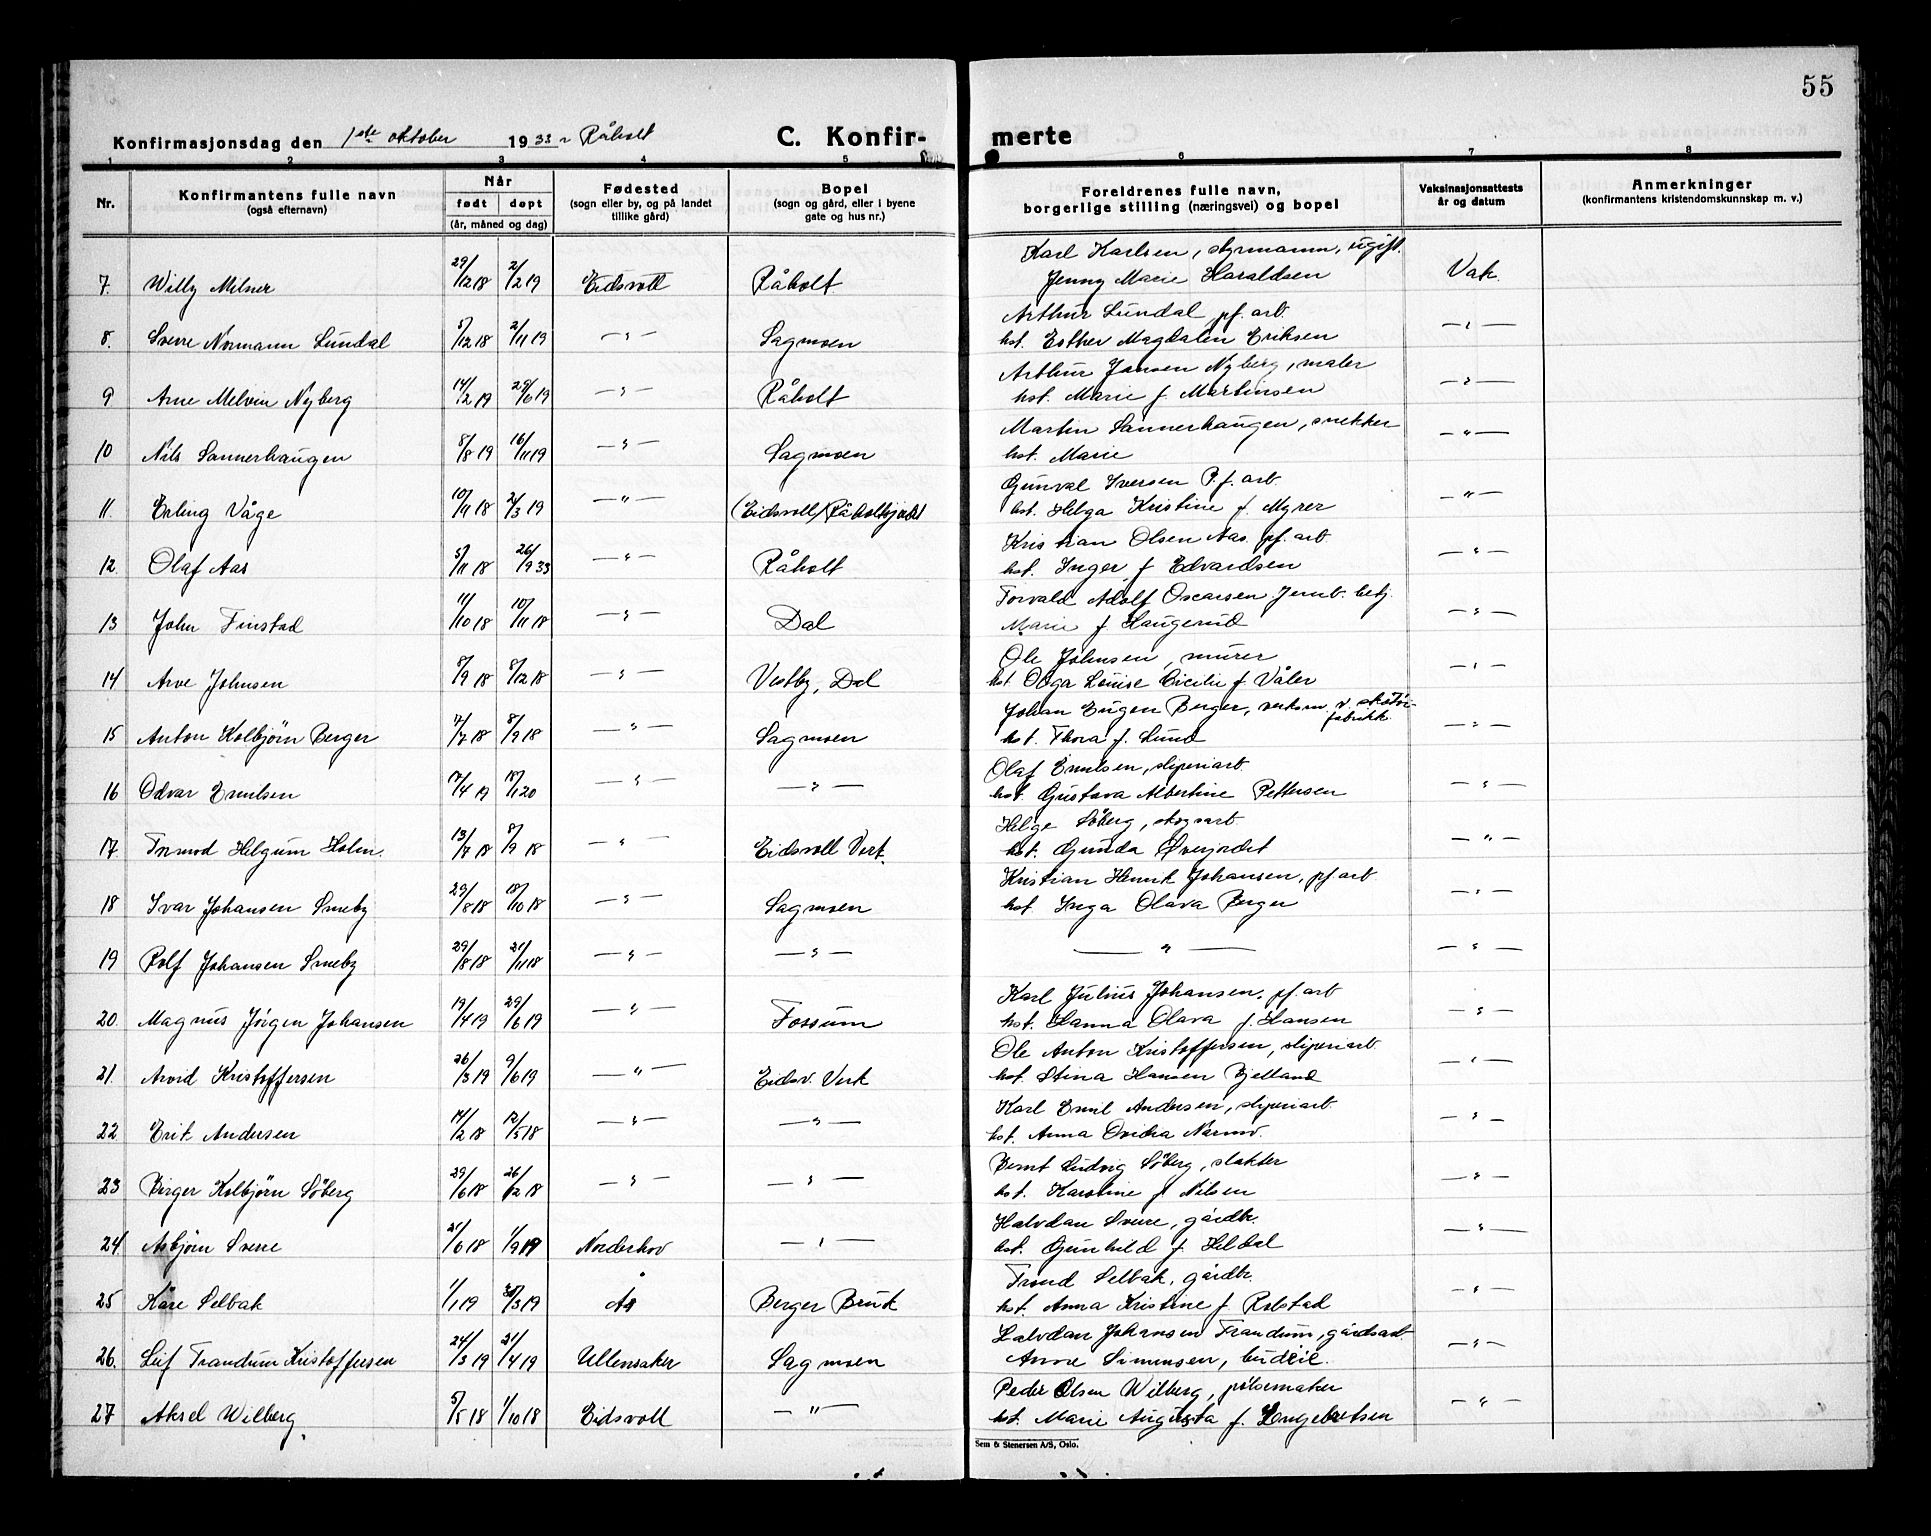 55
Konfirmasjonsdag den 1ste oktober 1933 Råholt
C. Konfir- merte
1 2 3 4 5 6 7 8
Nr.
Konfirmantens fulle navn (også efternavn)
Når født døpt (år, måned og dag)
Fødested (sogn eller by, og på landet tillike gård)
Bopel (sogn og gård, eller i byene gate og hus nr.)
Foreldrenes fulle navn, borgerlige stilling (næringsvei) og bopel
Vaksinasjonsattests år og datum
Anmerkninger (konfirmantens kristendomskunnskap m. v.)
Karl Karlsen, styrmann, ugift.
7. Willy Milner 29/12 18 2/2 19 Eidsvoll Råholt Jenny Marie Haraldsen Vak.
Arthur Lundal pf. arb.
8. Sverre Normann Lundal 5/12 18 2/11 19 — " — Sagmoen hst. Esther Magdalen Eriksen — " —
Arthur Jansen Nyberg, maler
9 Arne Melvin Nyberg 14/2 19 29/6 19 — " — Råholt hst. Marie f. Martinsen — " —
Martin Sannerhaugen, snekker
10 Nils Sannerhaugen 8/8 19 16/11 19 — " — Sagmoen hst. Marie — " —
Gunval Iversen P.f. arb.
11. Erling Våge 10/11 18 2/3 19 — " — (Eidsvoll) Råholtbjødet hst. Helga Kristine f. Myrer — " —
Kristian Olsen Aas. pf. arb.
12. Olaf Aas 5/11 18 26/9 33 — " — Råholt hst. Inger f. Edvardsen — " —
Torvald Adolf Oscarsen Jernb. betj.
13 John Finstad 11/10 18 10/11 18 — " — Dal Marie f. Haugerud — " —
Ole Johnsen, murer
14 Arve Johnsen 8/9 18 8/12 18 — " — Vestby, Dal hst. Olga Louise Cicilie f. Våler — " —
Johan Eugen Berger, verksm. v. skotøi-
fabrikk.
15 Anton Kolbjörn Berger 7/7 18 8/9 18 — " — Sagmoen hst. Thora f. Lund — " —
Olaf Emilsen, sliperiarb.
16 Odvar Emilsen 17/4 19 18/1 20 — " — — " — hst. Gustava Albertine Pettersen — " —
Helge Söberg, skogsarb.
17. Tormod Helgum Holm. 13/7 18 8/9 18 — " — Eidsvoll Verk. hst. Gunda Øverjordet — " —
Kristian Henrik Johansen, pf. arb.
18 Ivar Johansen Smeby 29/8 18 18/10 18 — " — Sagmoen hst. Inga Olava Berger — " —
19 Rolf Johansen Smeby 29/8 18 21/11 18 — " — — " — — " — — " —
Karl Julius Johansen, pf. arb
20. Magnus Jörgen Johansen 19/4 19 29/6 19 — " — Fossum hst. Hanna Olava f. Hansen — " —
Ole Anton Kristoffersen, sliperiarb.
21. Arvid Kristoffersen 26/3 19 9/6 19 — " — Eidsv. Verk hst. Stina Hansen Bjelland — " —
Karl Emil Andersen, sliperiarb.
22 Erik Andersen 14/2 18 12/5 18 — " — — " — hst. Anna Ovidia — " —
Bernt Ludvig Söberg, slakter
23 Birger Kolbjörn Söberg 29/6 18 26/12 18 — " — — " — hst. Karoline f. Nilsen — " —
Halvdan Sverre, gårdbr.
24 Asbjörn Sverre 21/6 18 1/9 19 Norderhov — " — hst. Gunhild f. Hildal — " —
Trond Selbak, gårdbr.
25 Kåre Selbak 1/1 19 30/3 19 Ås Berger Bruk hst. Anna Kristine f. Rolstad — " —
Halvdan Johansen Trandum, gårdsarb.
26. Leif Trandum Kristoffersen 24/3 19 21/4 19 Ullensaker Sagmoen Anne Simensen, budeie. — " —
Peder Olsen Wilberg, pölsemaker
27 Aksel Wilberg 5/5 18 1/10 18 Eidsvoll — " — hst. Marie Augusta f. Engebretsen — " —
Sem & Stenersen A/S, Oslo.